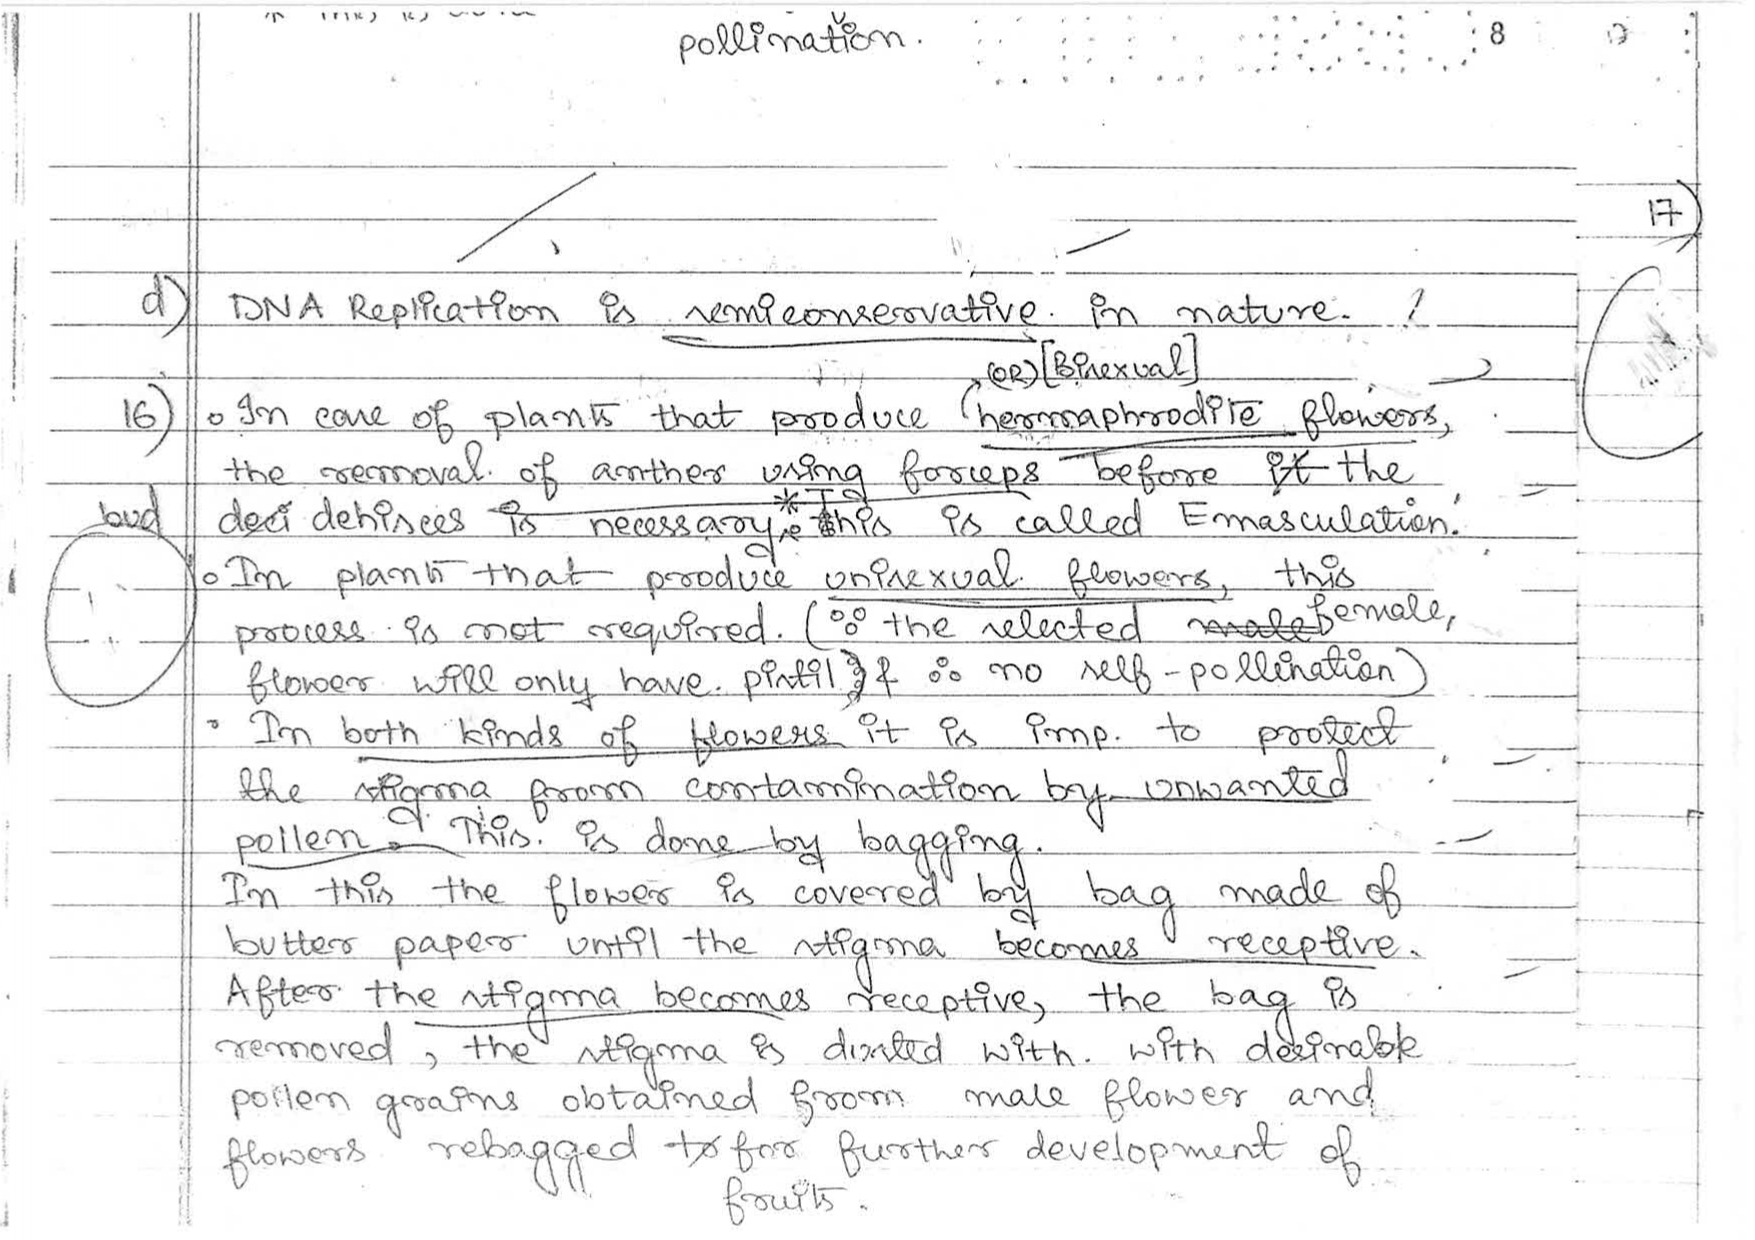 pollination.
8
17)
d) DNA Replication is semiconservative. in nature.
(OR) [Bisexual]
16) In case of plants that produce (hermaphrodite flowers,
the removal of anther using forceps before it the
bud deci dehisces is necessary. * This is called Emasculation.
In plants that produce unisexual flowers, this
process is not required. (∵ the selected male female,
flower will only have pistil } & ∴ no self-pollination)
In both kinds of flowers it is imp. to protect
the stigma from contamination by unwanted
pollen. This is done by bagging.
In this the flower is covered by bag made of
butter paper until the stigma becomes receptive.
After the stigma becomes receptive, the bag is
removed, the stigma is dusted with. with desirable
pollen grains obtained from male flower and
flowers rebagged to for further development of
fruits.